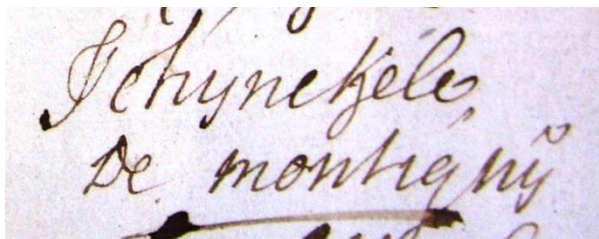 Schynckele
De montignÿ